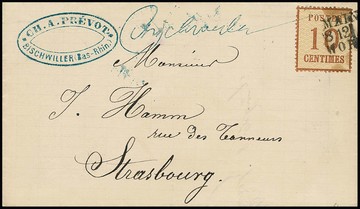 CH. A. PRÉVOT
BISCHWILLER (Bas-Rhin)
Bischweiler
POSTES
10
CENTIMES
NAC
12
Monsieur
J. Hamm
rue des Tanneurs
Strasbourg.